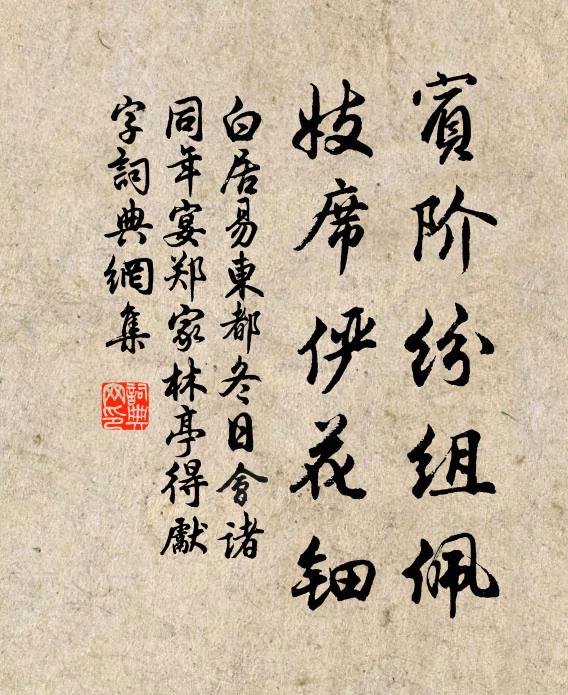 賓阶纷组佩
妓席俨花钿
白居易東都冬日會诸
同年宴郑家林亭得獻
字詞典網集
詞典
网印